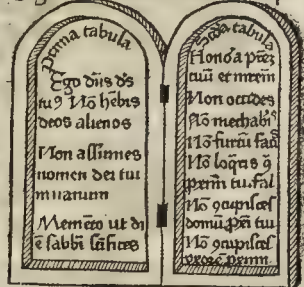 Prima tabula
Ego dñs ds
tuꝰ Nō hēbis
deos alienos
Non assumes
nomen dei tui
in uanum
Memēto ut di
ē sabbi scīfices
Scđa tabula
Honora prēz
tuū et mrēm
Non occides
Nō mechabis
Nō furtū faciˢ
Nō loqr̄is ꝯ
prm̄ tu. fal
Nō ꝯcupisces
domū prmi tui
Nō ꝯcupisces
vxorē prmi